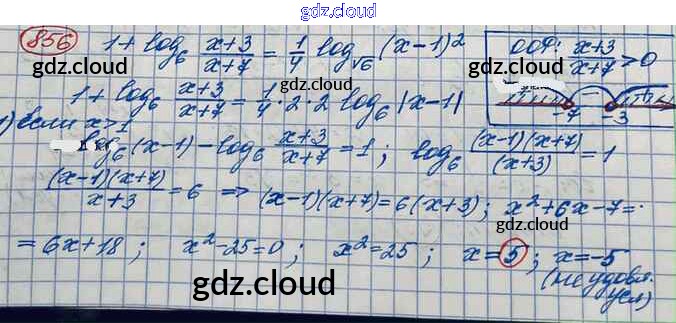 gdz.cloud
856 1+log₆ (x+3)/(x+7) = 1/4 log_√6 (x-1)²
ООФ: (x+3)/(x+7) > 0
gdz.cloud gdz.cloud
1+log₆ (x+3)/(x+7) = 1/4·2·2 log₆|x-1|
+ - +
-7 -3
1) если x>1
log₆(x-1) - log₆ (x+3)/(x+7) = 1; log₆ (x-1)(x+7)/(x+3) = 1
gdz.cloud gdz.cloud
(x-1)(x+7)/(x+3) = 6 ⇒ (x-1)(x+7)=6(x+3); x²+6x-7=
=6x+18; x²-25=0; x²=25; x=5; x=-5
(не удовл. усл)
gdz.cloud